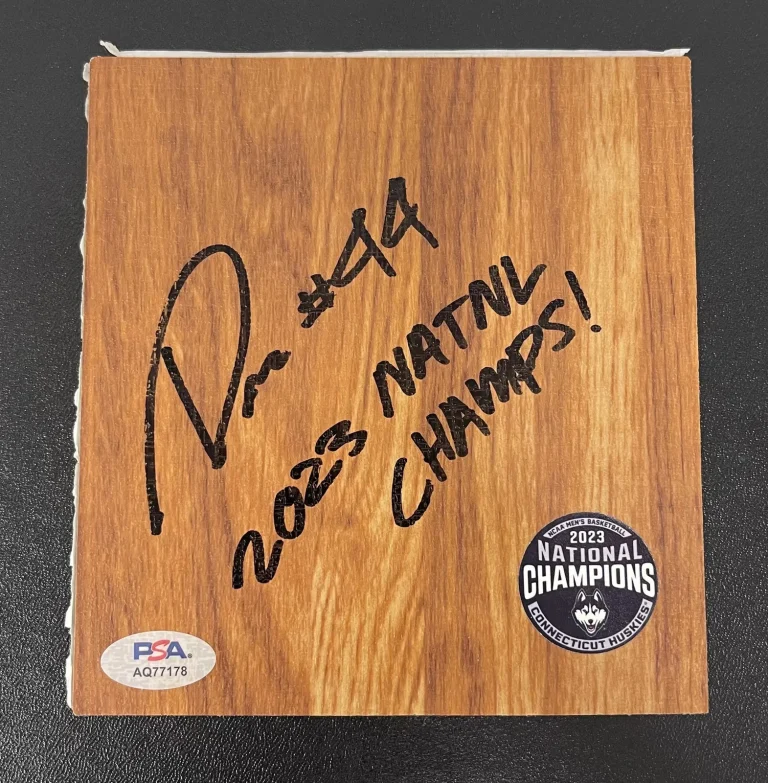 #44
2023 NATNL
CHAMPS!
NCAA MEN'S BASKETBALL
2023
NATIONAL
CHAMPIONS
CONNECTICUT HUSKIES
PSA
AQ77178